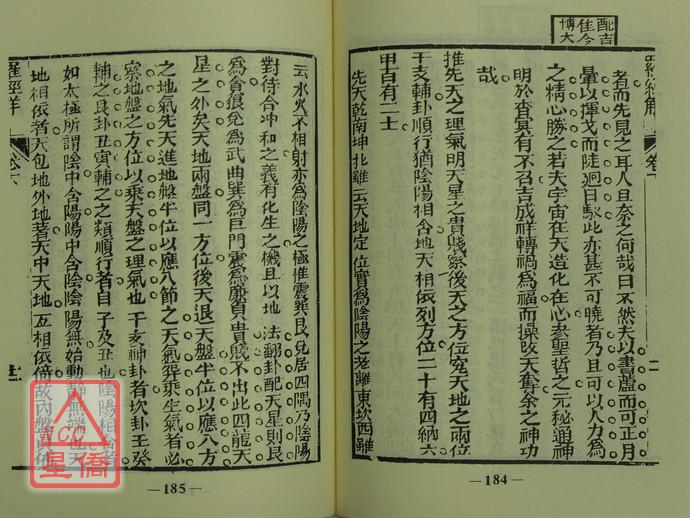 配吉
佳今
博大
者而先見之耳人且奈之何哉曰不然夫以畫蘆而可正月
暈以揮戈而陡迴日馭此亦甚不可曉者乃且可以人力為
之精心勝之若夫宇宙在天造化在心泰聖哲之元秘通神
明於杳冥有不召吉成祥轉禍為福而操改天奪命之神功
哉
推先天之理氣明天星之貴賤察後天之方位定天地之兩位
干支輔卦順行猶陰陽相含地天相依列方位二十有四納六
甲百有二十
先天乾南坤北雖云天地定位實為陰陽之老離東坎西雖
—184—
云水火不相射亦為陰陽之極惟震巽艮兌居四隅乃陰陽
對待合冲和之義有化生之機且以地法翻卦配天星則艮
為貪狼兌為武曲巽為巨門震為廉貞貴賤不出此四龍天
星之外矣天地兩盤同一方位後天退天盤半位以應八方
之地氣先天進地盤半位以應八節之天氣葬乘生氣者必
察地盤之方位以乘天盤之理氣也干支神卦者坎卦壬癸
輔之艮卦丑寅輔之之類順行者自子及丑也陰陽相含者
如太極所謂陰中含陽陽中含陰陰陽無始動靜無端也天
地相依者天包地外地著天中天地互相依倚故內盤
—185—
NCC
星僑